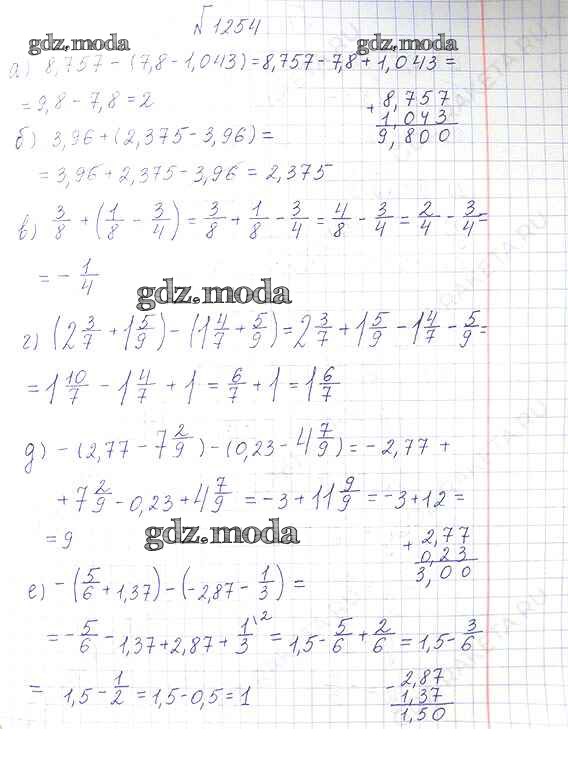 №1254
gdz.moda gdz.moda
а) 8,757 - (7,8 - 1,043) = 8,757 - 7,8 + 1,043 =
= 9,8 - 7,8 = 2
+ 8,757
1,043
9,800
б) 3,96 + (2,375 - 3,96) =
= 3,96 + 2,375 - 3,96 = 2,375
в) 3/8 + (1/8 - 3/4) = 3/8 + 1/8 - 3/4 = 4/8 - 3/4 = 2/4 - 3/4 =
= - 1/4
gdz.moda
г) (2 3/7 + 1 5/9) - (1 4/7 + 5/9) = 2 3/7 + 1 5/9 - 1 4/7 - 5/9 =
= 1 10/7 - 1 4/7 + 1 = 6/7 + 1 = 1 6/7
д) - (2,77 - 7 2/9) - (0,23 - 4 7/9) = - 2,77 +
+ 7 2/9 - 0,23 + 4 7/9 = - 3 + 11 9/9 = - 3 + 12 =
= 9
gdz.moda
+ 2,77
0,23
3,00
е) - (5/6 + 1,37) - (- 2,87 - 1/3) =
= - 5/6 - 1,37 + 2,87 + 1/3 \2 = 1,5 - 5/6 + 2/6 = 1,5 - 3/6
= 1,5 - 1/2 = 1,5 - 0,5 = 1
- 2,87
1,37
1,50